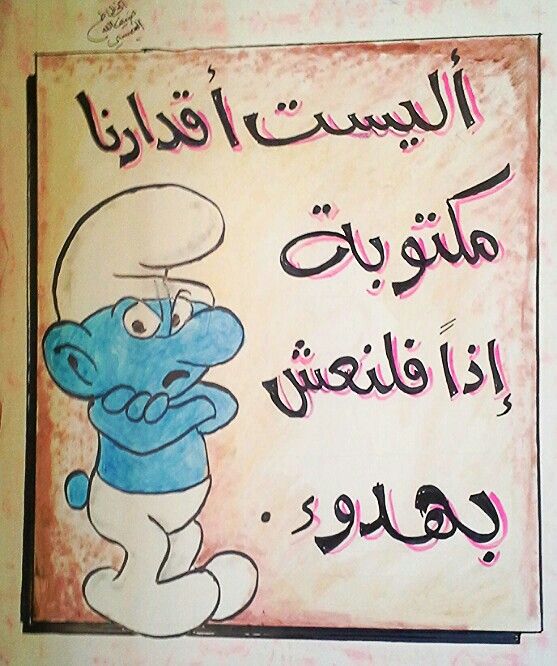 أليست أقدارنا
مكتوبة
إذاً فلنعش
بهدوء .